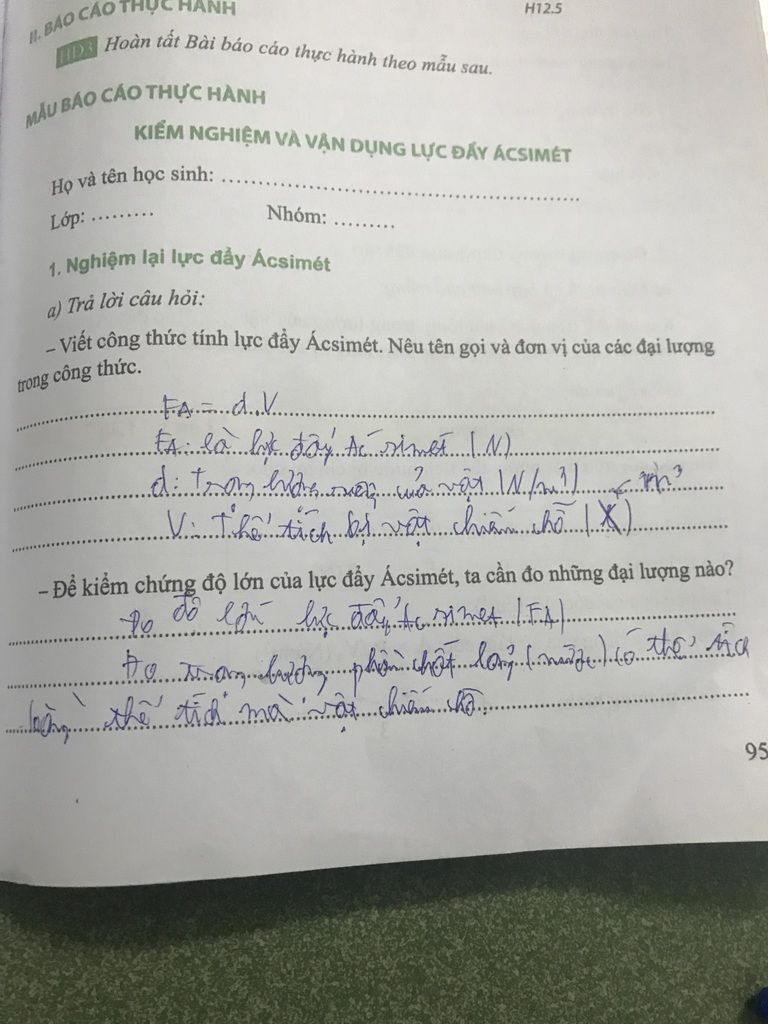 H12.5
II. BÁO CÁO THỰC HÀNH
HĐ3 Hoàn tất Bài báo cáo thực hành theo mẫu sau.
MẪU BÁO CÁO THỰC HÀNH
KIỂM NGHIỆM VÀ VẬN DỤNG LỰC ĐẨY ÁCSIMÉT
Họ và tên học sinh: ..................................................
Lớp: ......... Nhóm: .........
1. Nghiệm lại lực đẩy Ácsimét
a) Trả lời câu hỏi:
– Viết công thức tính lực đẩy Ácsimét. Nêu tên gọi và đơn vị của các đại lượng
trong công thức.
FA = d.V
FA: là lực đẩy Ác simét (N)
d: Trọng lượng riêng của vật (N/m³) m³
V: Thể tích bị vật chiếm chỗ (X)
– Để kiểm chứng độ lớn của lực đẩy Ácsimét, ta cần đo những đại lượng nào?
Đo độ lớn lực đẩy Acsimet (FA)
Đo trọng lượng phần chất lỏng (nước) có thể tích
bằng thể tích mà vật chiếm chỗ.
95